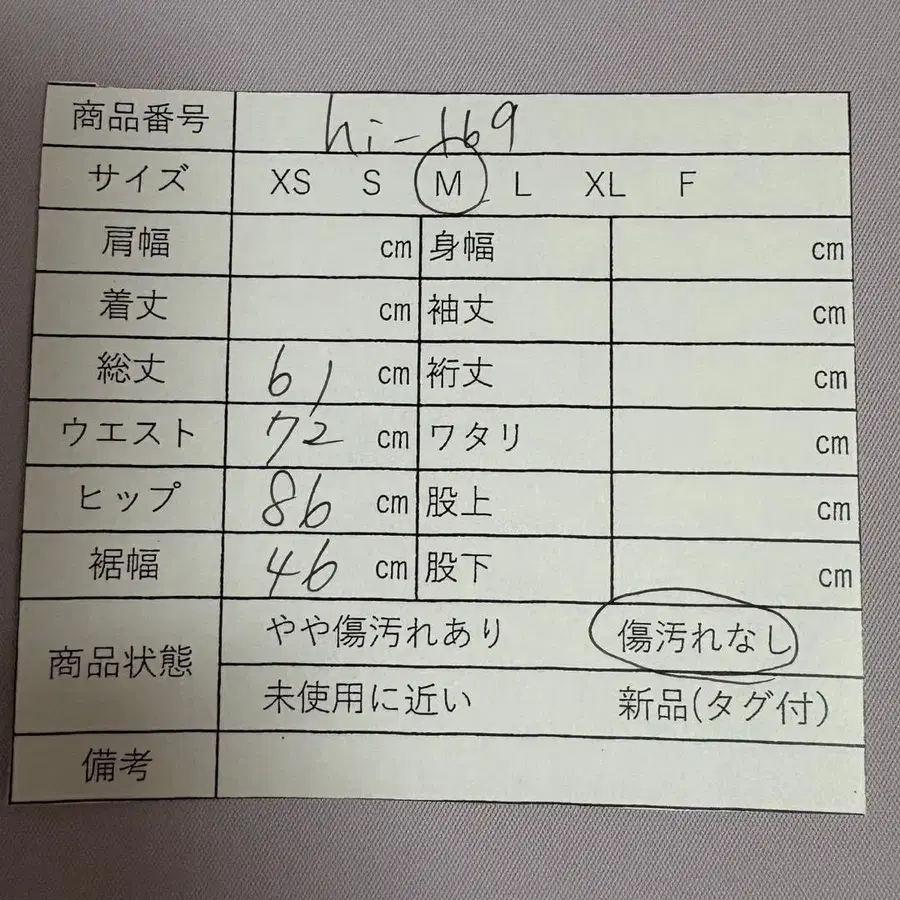 商品番号 hi-169
サイズ XS S M L XL F
肩幅 cm 身幅 cm
着丈 cm 袖丈 cm
総丈 61 cm 裄丈 cm
ウエスト 72 cm ワタリ cm
ヒップ 86 cm 股上 cm
裾幅 46 cm 股下 cm
商品状態 やや傷汚れあり 傷汚れなし
未使用に近い 新品(タグ付)
備考